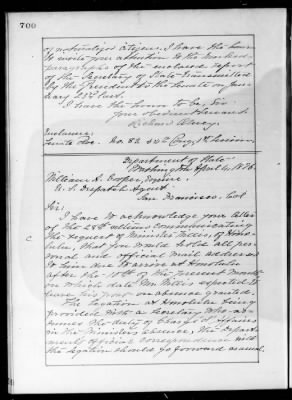 700
or naturalized citizen, I have the honor
to invite your attention to the marked
paragraphs of the enclosed report
of the Secretary of State transmitted
by the President to the Senate on Jan-
uary 23d last.
I have the honor to be, Sir,
Your obedient servant,
Richard Olney.
Enclosure:
Senate Doc. No. 83 54th Cong. 1st Session.
Department of State,
Washington, April 6, 1896.
William A. Cooper, Esquire,
U. S. Despatch Agent,
San Francisco, Cal.
Sir:
I have to acknowledge your letter
of the 28th ultimo communicating
the request of Minister Willis, of Hono-
lulu, that you would hold all per-
sonal and official mail addressed
to him to arrive at Honolulu
after the 10th of the present month
on which date Mr. Willis expected to
leave his post on absence granted.
The legation at Honolulu being
provided with a Secretary who as-
sumes the duty of Chargé d'Affaires
in the Minister's absence, the Depart-
ment's official correspondence with
the legation should go forward as usual.